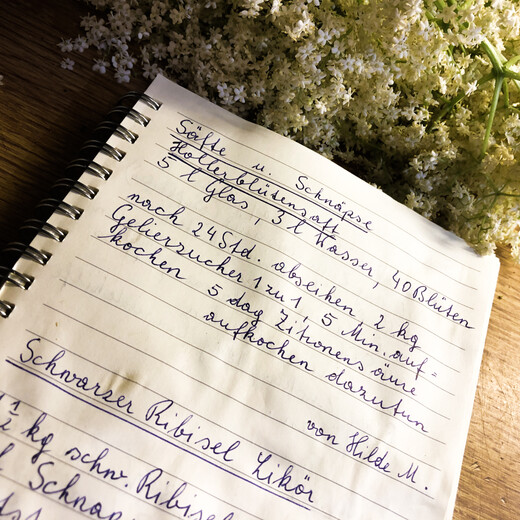 Säfte u. Schnäpse
Hollerblütensaft
5 l Glas, 3 l Wasser, 40 Blüten
nach 24 Std. abseihen 2 kg
Gelierzucker 1 zu 1, 5 Min. auf=
kochen 5 dag Zitronensäure
aufkochen dazutun
von Hilde M.
Schwarzer Ribisel Likör
kg schw. Ribisel
Schnap